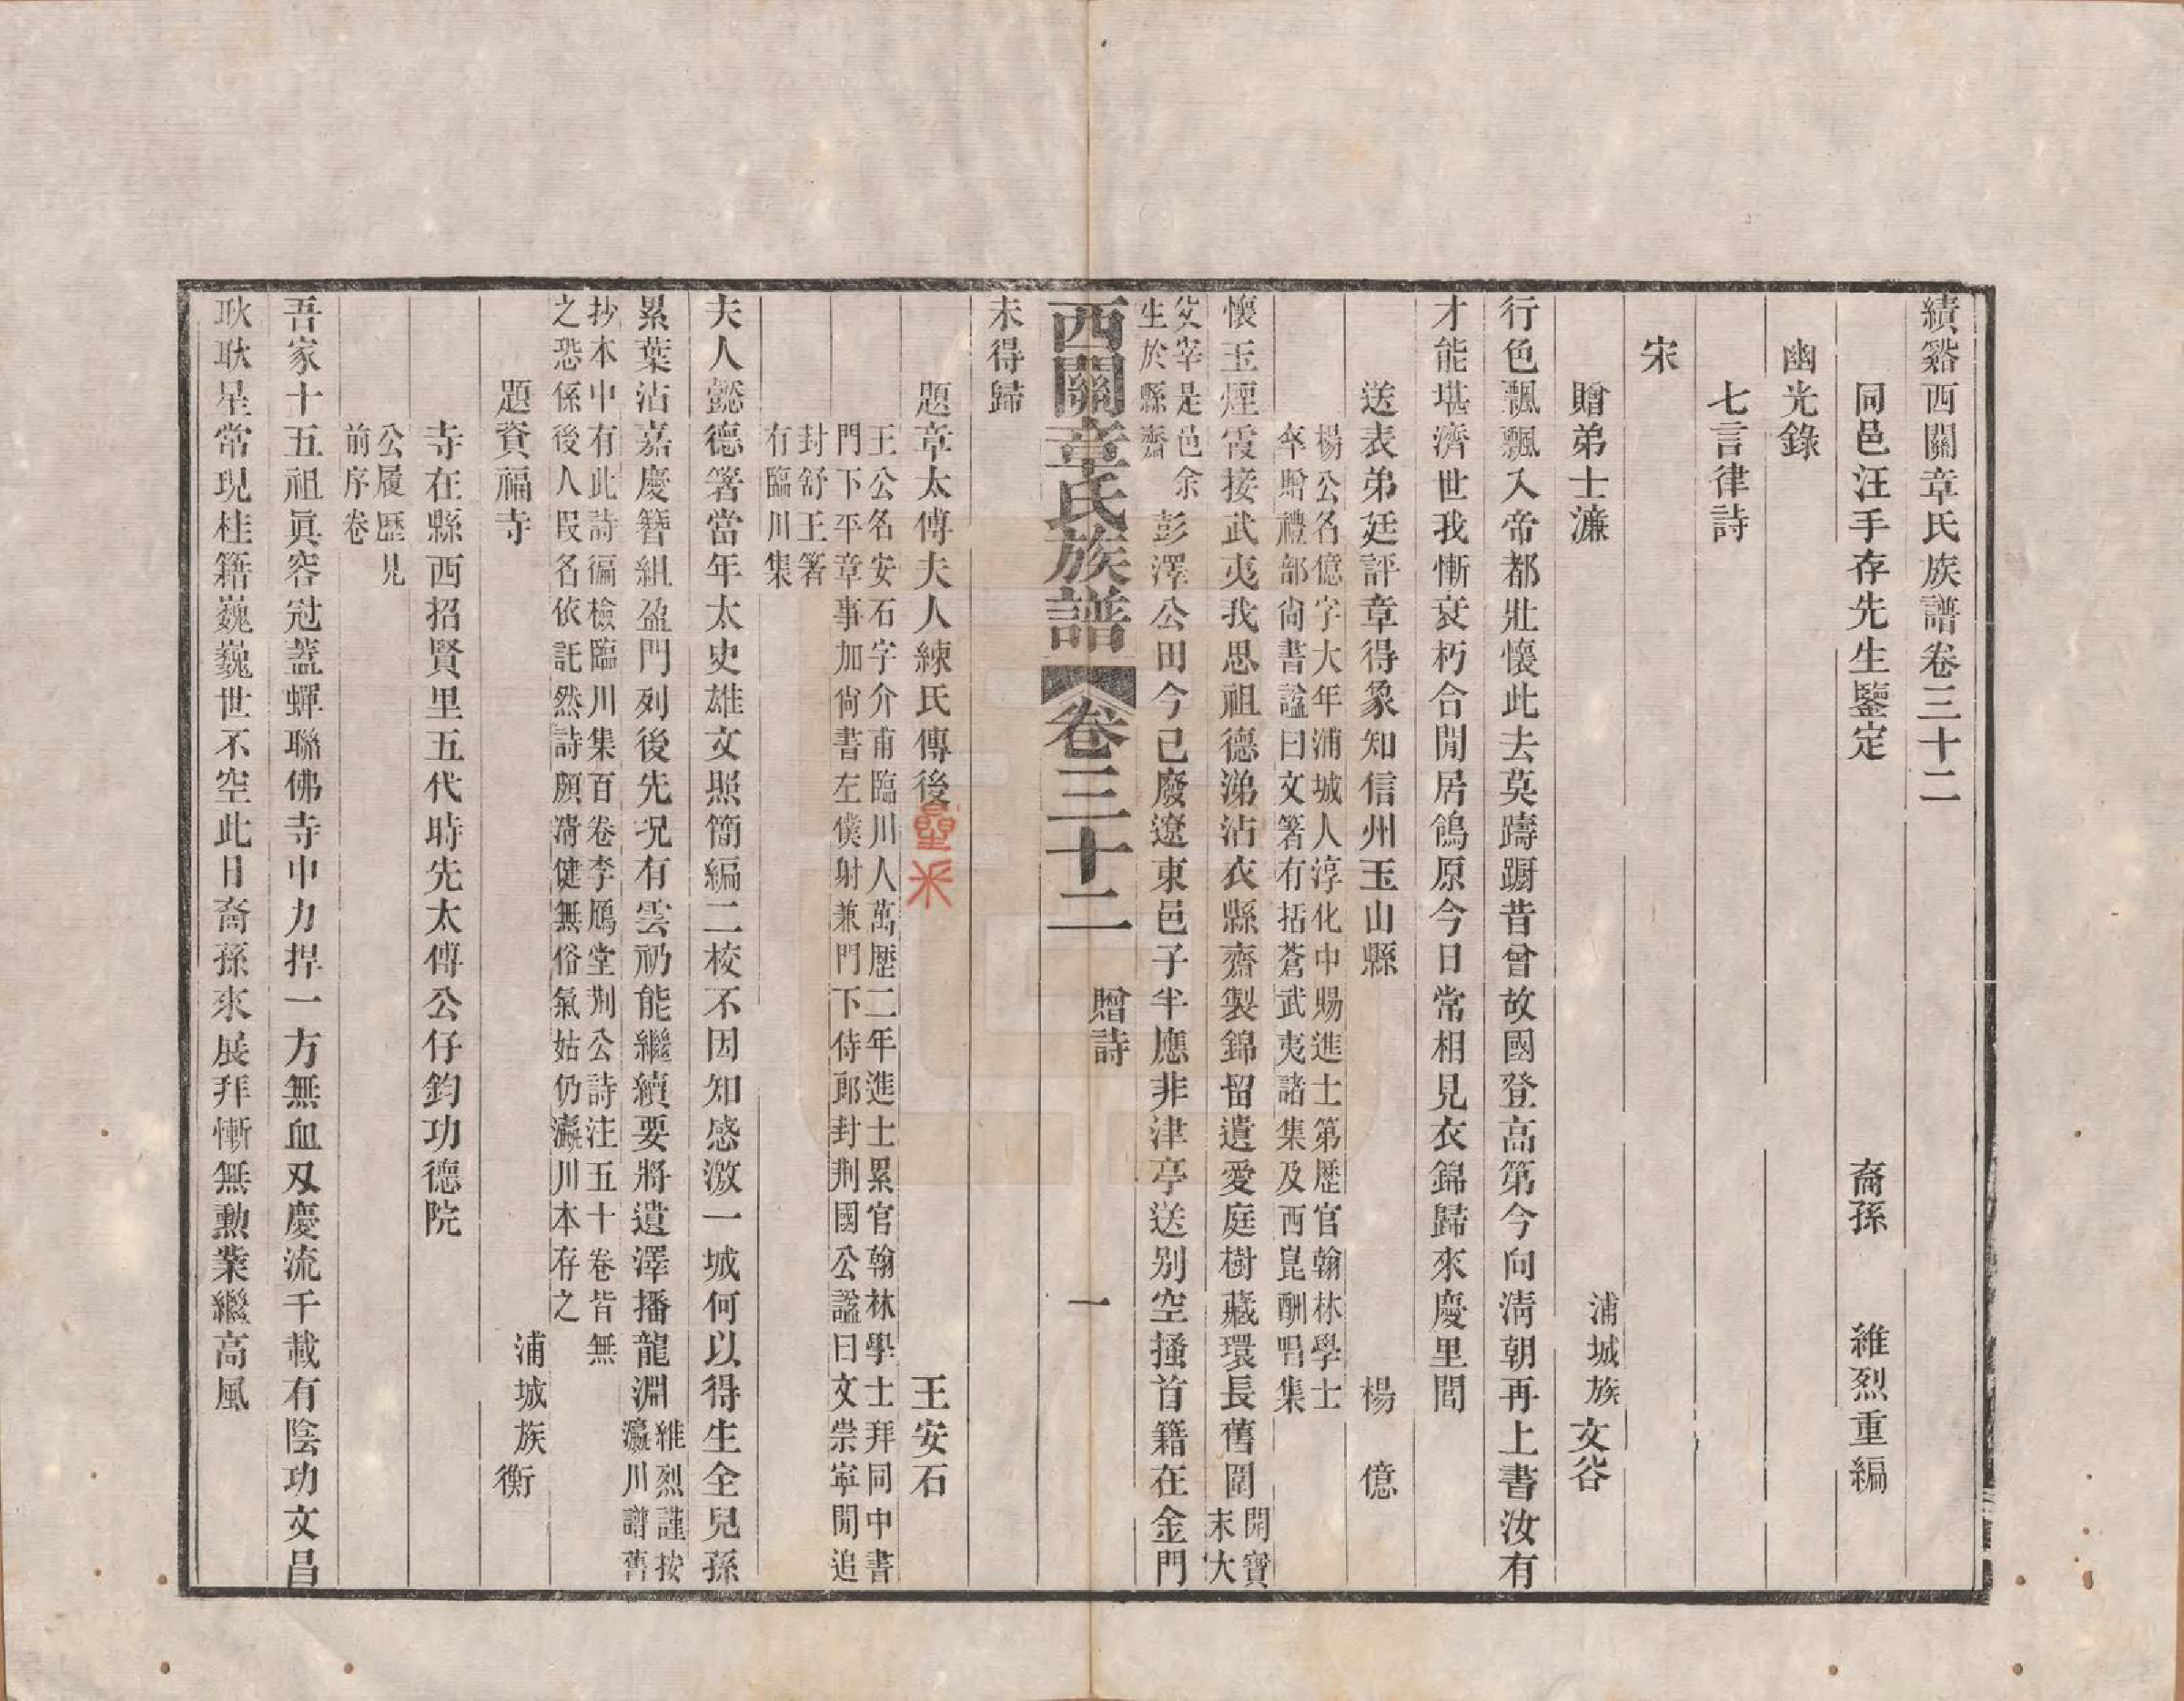 績谿西關章氏族譜卷三十二
同邑汪手存先生鑒定　裔孫　維烈重編
幽光錄
七言律詩
宋
贈弟士濂　浦城族　文谷
行色飄飄入帝都壯懷此去莫躊躕昔曾故國登高第今向淸朝再上書汝有
才能堪濟世我慚衰朽合閒居鴒原今日常相見衣錦歸來慶里閭
送表弟廷評章得象知信州玉山縣　楊　億
楊公名億字大年浦城人淳化中賜進士第歷官翰林學士
卒贈禮部尙書諡曰文箸有括蒼武夷諸集及西崑酬唱集
懷玉煙霞接武夷我思祖德涕沾衣縣齋製錦留遺愛庭樹藏環長舊圍
開寶
末大
父宰是邑余
生於縣齋
彭澤公田今已廢遼東邑子半應非津亭送别空搔首籍在金門
西關章氏族譜　卷三十二　贈詩　一
未得歸
題章太傅夫人練氏傳後　王安石
王公名安石字介甫臨川人萬歷二年進士累官翰林學士拜同中書
門下平章事加尙書左僕射兼門下侍郎封荆國公諡曰文崇寧閒追
封舒王箸
有臨川集
夫人懿德箸當年太史雄文照簡編二校不因知感激一城何以得生全兒孫
累葉沾嘉慶簪組盈門列後先况有雲礽能繼續要將遺澤播龍淵
維烈謹按
瀛川譜舊
抄本中有此詩徧檢臨川集百卷李鴈堂荆公詩注五十卷皆無
之恐係後人叚名依託然詩頗淸健無俗氣姑仍瀛川本存之
題資福寺　浦城族　衡
寺在縣西招賢里五代時先太傅公仔鈞功德院
公履歷見
前序卷
吾家十五祖眞容冠蓋蟬聯佛寺中力捍一方無血刄慶流千載有陰功文昌
耿耿星常現桂籍巍巍世不空此日裔孫來展拜慚無勳業繼高風